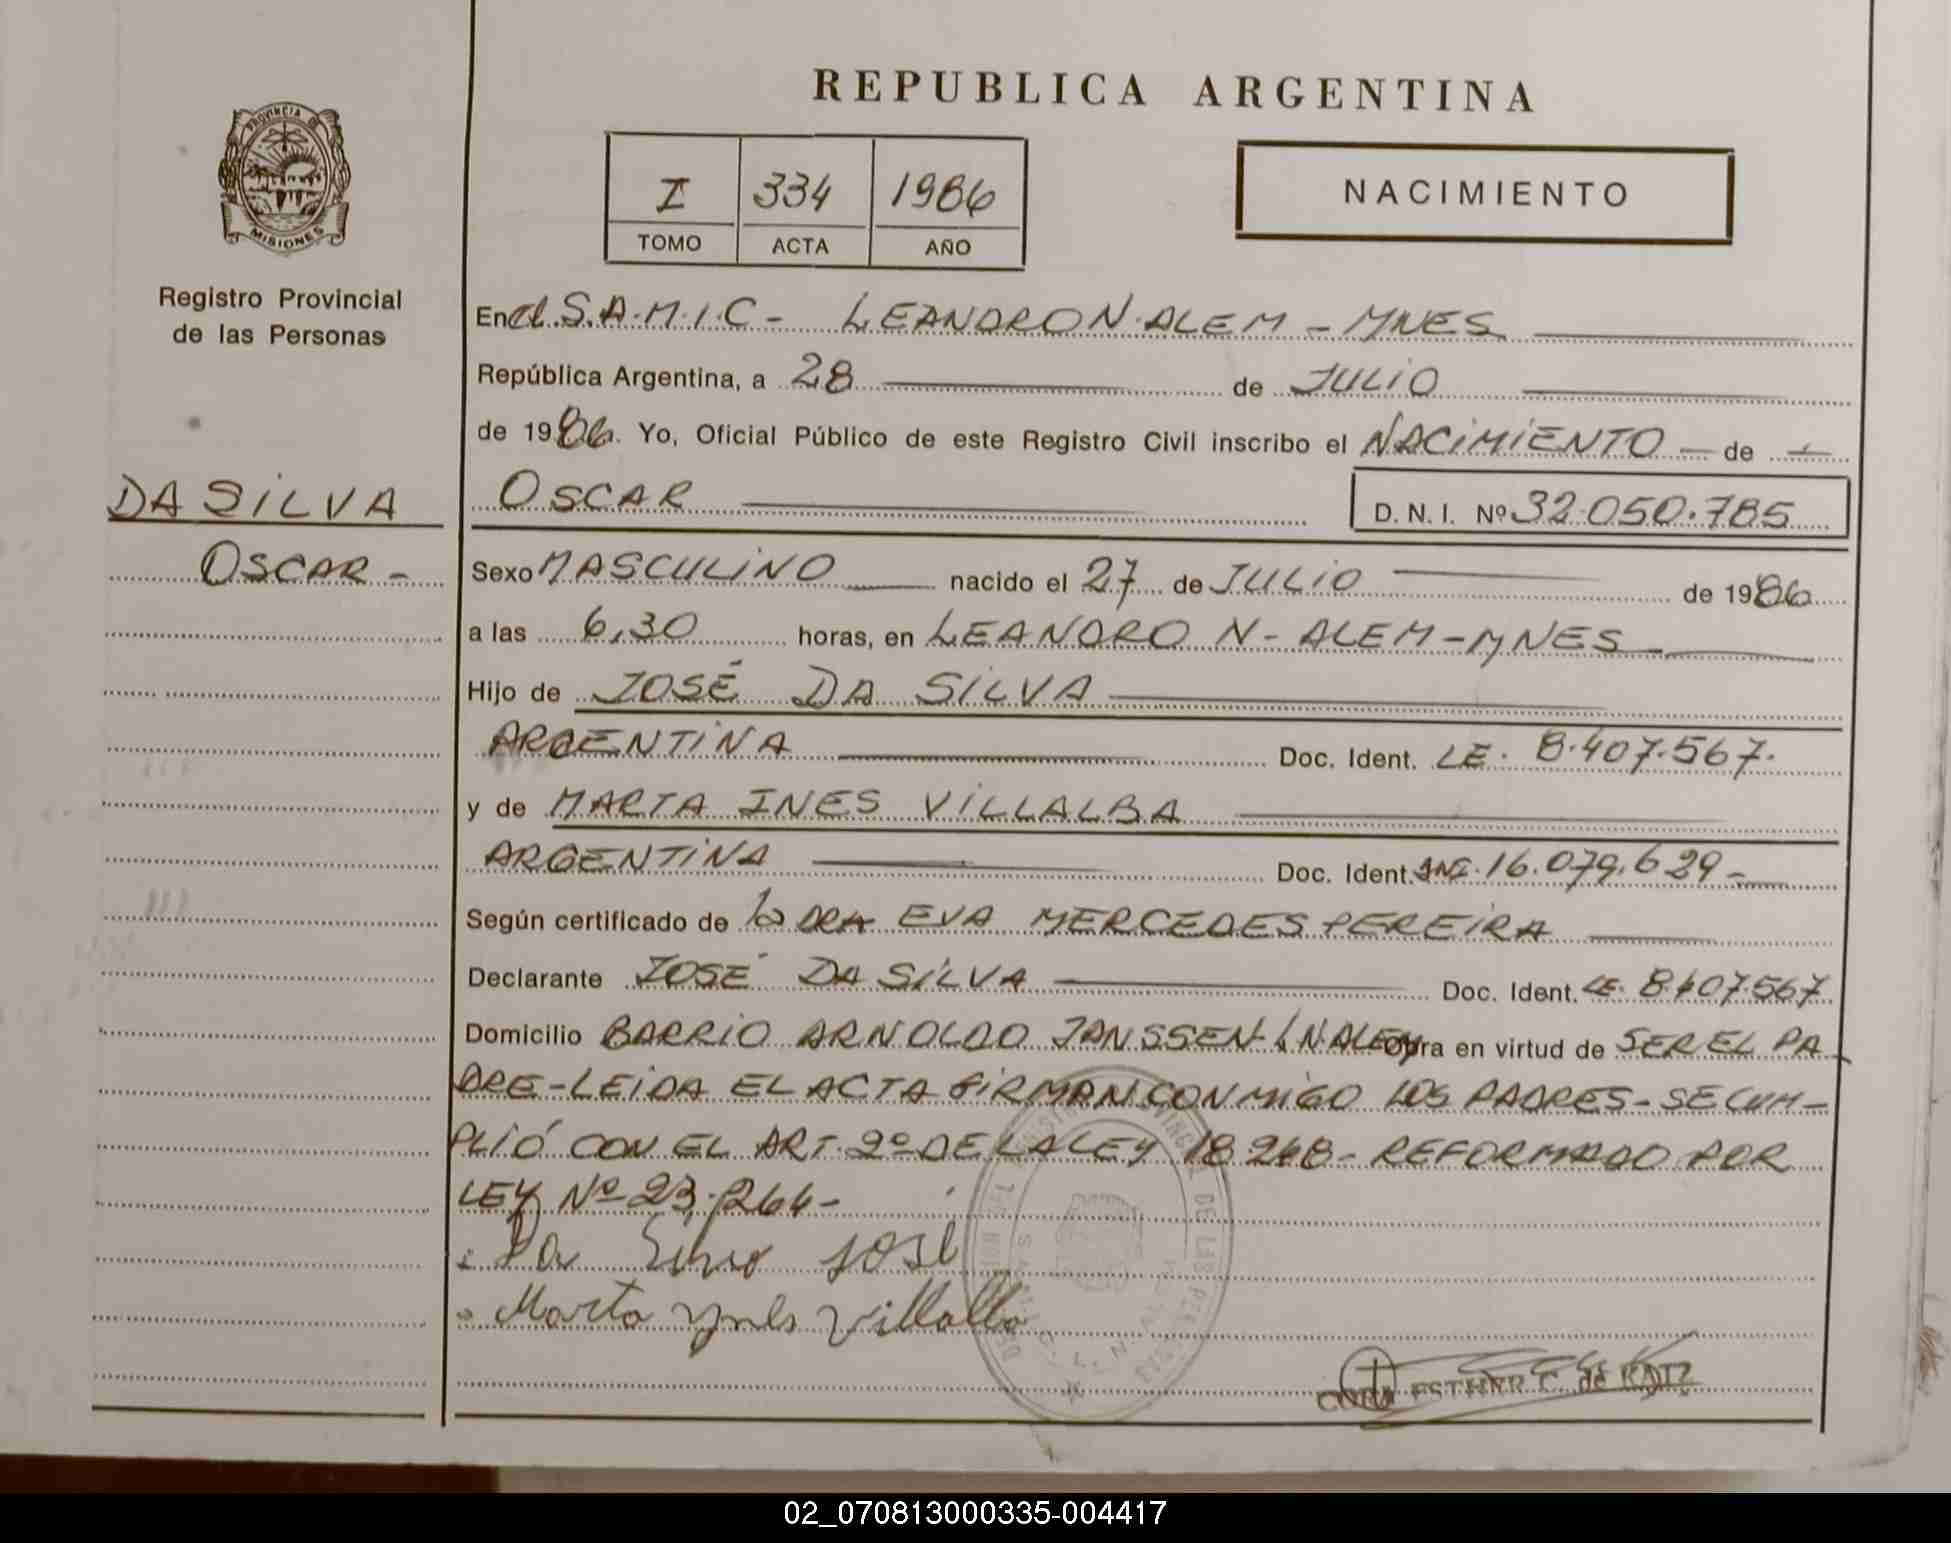 REPUBLICA ARGENTINA
PROVINCIA DE
MISIONES
I 334 1986
TOMO ACTA AÑO
NACIMIENTO
Registro Provincial
de las Personas
En el S.A.M.I.C - LEANDRO N. ALEM - MNES
República Argentina, a 28 de JULIO
de 1986. Yo, Oficial Público de este Registro Civil inscribo el NACIMIENTO - de
DA SILVA
OSCAR -
OSCAR D.N.I. Nº 32.050.785
Sexo MASCULINO nacido el 27 de JULIO de 1986
a las 6,30 horas, en LEANDRO N - ALEM - MNES -
Hijo de JOSÉ DA SILVA
ARGENTINA Doc. Ident. LE. 8.407.567.
y de MARTA INES VILLALBA
ARGENTINA Doc. Ident. 16.079.629 -
Según certificado de la DRA EVA MERCEDES PEREIRA
Declarante JOSÉ DA SILVA Doc. Ident. LE. 8407567
Domicilio BARRIO ARNOLDO JANSSEN - L N ALEM Obra en virtud de SER EL PA
DRE - LEIDA EL ACTA FIRMAN CONMIGO LOS PADRES - SE CUM-
PLIÓ CON EL ART. 2º DE LA LEY 18248 - REFORMADO POR
LEY Nº 23.264 -
Da Silva José
Marta Ynes Villalba
ESTHER C. de KATZ
02_070813000335-004417